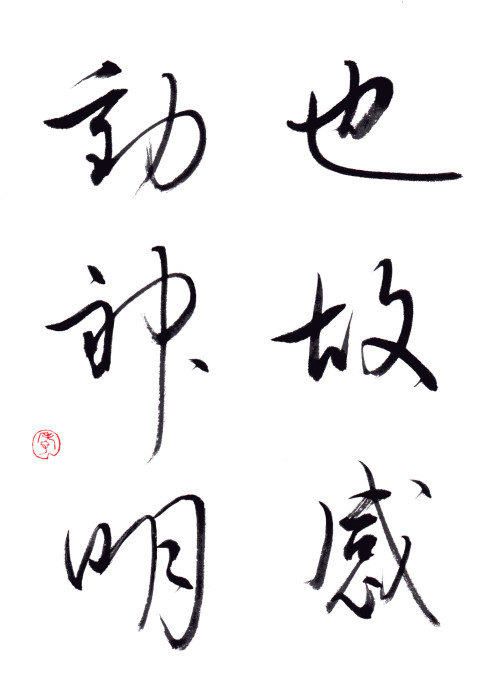 也故感
動神明